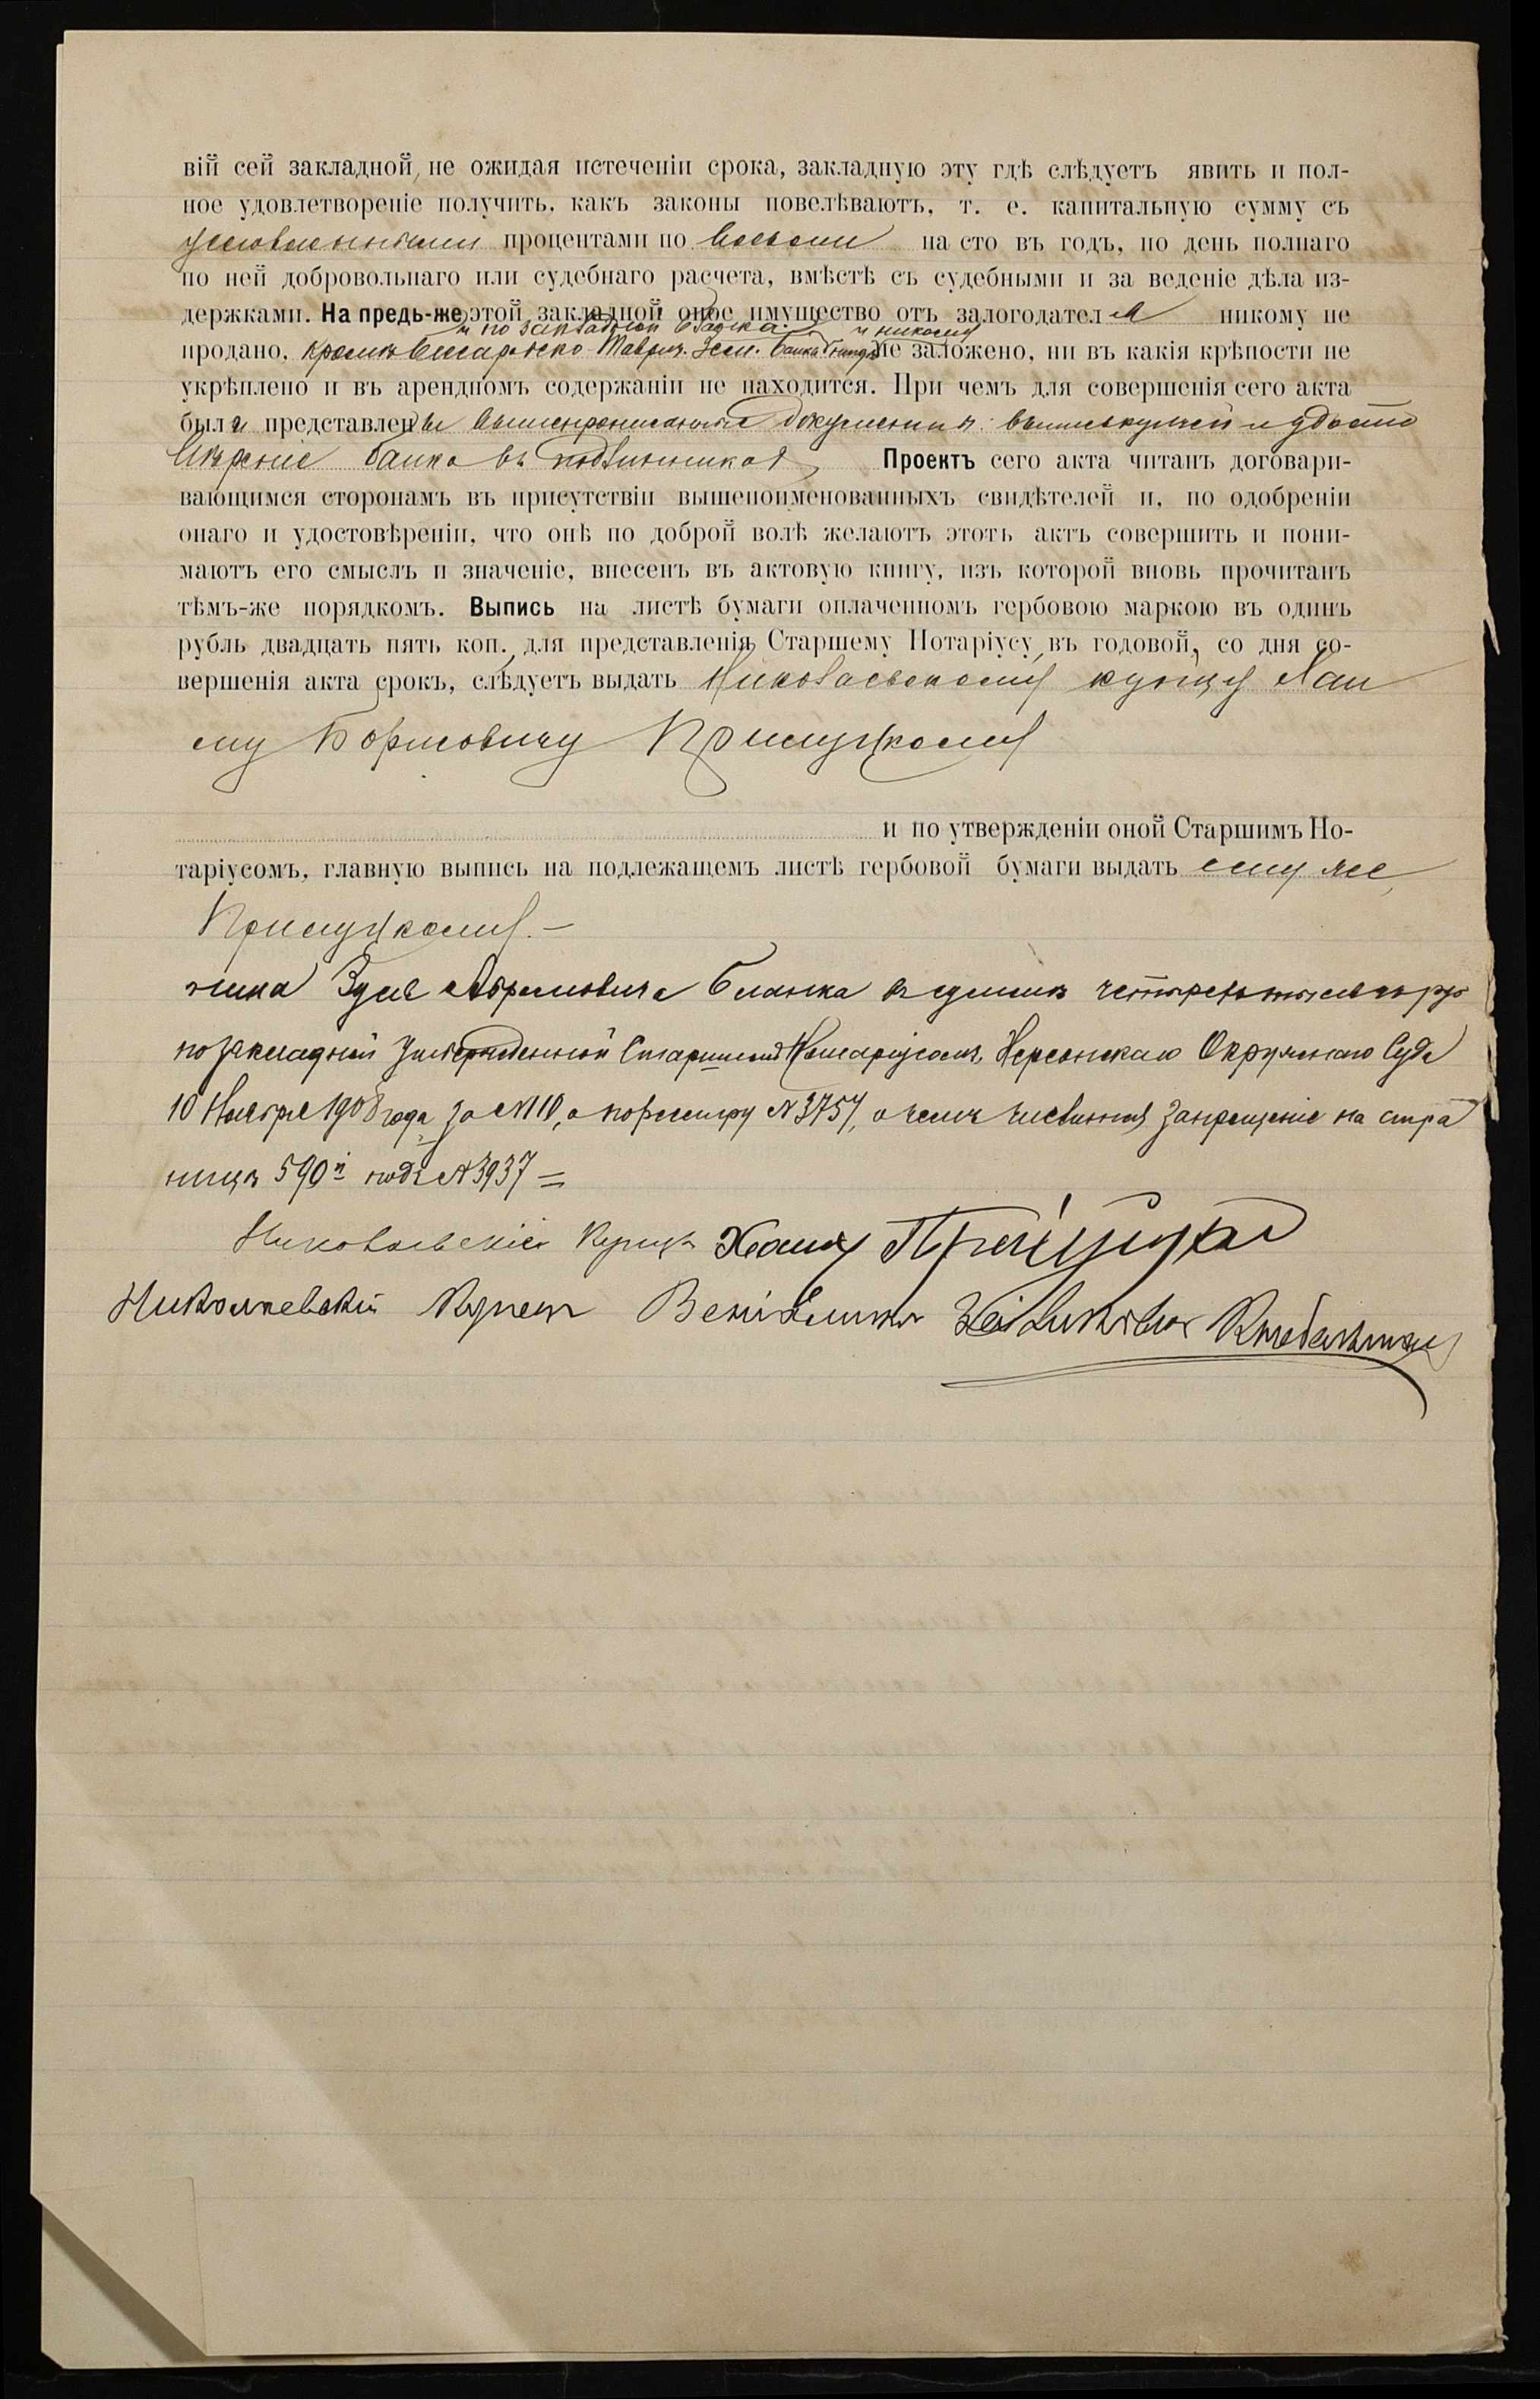 вій сей закладной, не ожидая истеченіи срока, закладную эту гдѣ слѣдуетъ явить и пол-
ное удовлетвореніе получить, какъ законы повелѣваютъ, т. е. капитальную сумму съ
условленными процентами по восьми на сто въ годъ, по день полнаго
по ней добровольнаго или судебнаго расчета, вмѣстѣ съ судебными и за веденіе дѣла из-
держками. На предь-же этой закладной оное имущество отъ залогодателя никому не
и по закладной Бланка и никому
продано, кромѣ Бессарабско-Таврич. Зем. банка нигдѣ не заложено, ни въ какія крѣпости не
укрѣплено и въ арендномъ содержаніи не находится. При чемъ для совершенія сего акта
были представлены вышепрописанные документы: выпись купчей и удосто
вѣреніе банка въ подлинникахъ, Проектъ сего акта читанъ договари-
вающимся сторонамъ въ присутствіи вышепоименованныхъ свидѣтелей и, по одобреніи
онаго и удостовѣреніи, что онѣ по доброй волѣ желаютъ этотъ актъ совершить и пони-
маютъ его смыслъ и значеніе, внесенъ въ актовую книгу, изъ которой вновь прочитанъ
тѣмъ-же порядкомъ. Выпись на листѣ бумаги оплаченномъ гербовою маркою въ одинъ
рубль двадцать пять коп. для представленія Старшему Нотаріусу въ годовой, со дня со-
вершенія акта срокъ, слѣдуетъ выдать Николаевскому купцу Хаи
му Борисовичу Прицкому
и по утвержденіи оной Старшимъ Но-
таріусомъ, главную выпись на подлежащемъ листѣ гербовой бумаги выдать ему же,
Прицкому. —
Абрамовича Бланка въ суммѣ четырехъ тысячъ руб
по закладной утвержденной Старшимъ Нотаріусомъ Херсонскаго Окружнаго Суда
10 Ноября 1908 года за № 110, а по реестру № 3757, о чемъ числится запрещеніе на стра
ницѣ 590й подъ № 3937 =
Николаевскій Купецъ Хаимъ
Николаевскій Купецъ